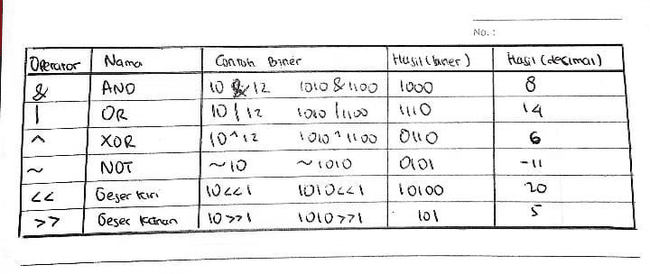 No. :
Operator Nama Contoh Biner Hasil (biner) Hasil (decimal)
& AND 10 & 12 1010 & 1100 1000 8
| OR 10 | 12 1010 | 1100 1110 14
^ XOR 10 ^ 12 1010 ^ 1100 0110 6
~ NOT ~10 ~1010 0101 -11
<< Geser kiri 10<<1 1010<<1 10100 20
>> Geser kanan 10>>1 1010>>1 101 5